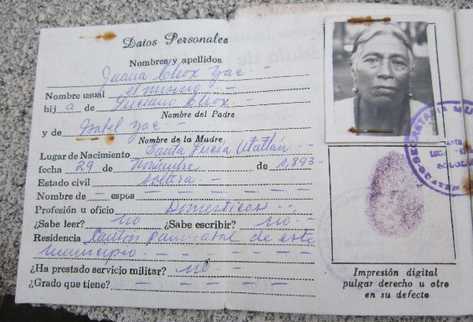 Datos Personales
Nombres y apellidos
Juana Chox Yac
Nombre usual El mismo
hij a de Luciano Chox
Nombre del Padre
y de Isabel Yac
Nombre de la Madre
Lugar de Nacimiento, Santa Lucia Utatlán
fecha 29 de Noviembre de 1,893-
Estado civil soltera
Nombre de espos
Profesión u oficio Domésticos
¿Sabe leer? no ¿Sabe escribir? no
Residencia Cantón de este
municipio
¿Ha prestado servicio militar? no
¿Grado que tiene?
Impresión digital
pulgar derecho u otro
en su defecto
SECRETARIA